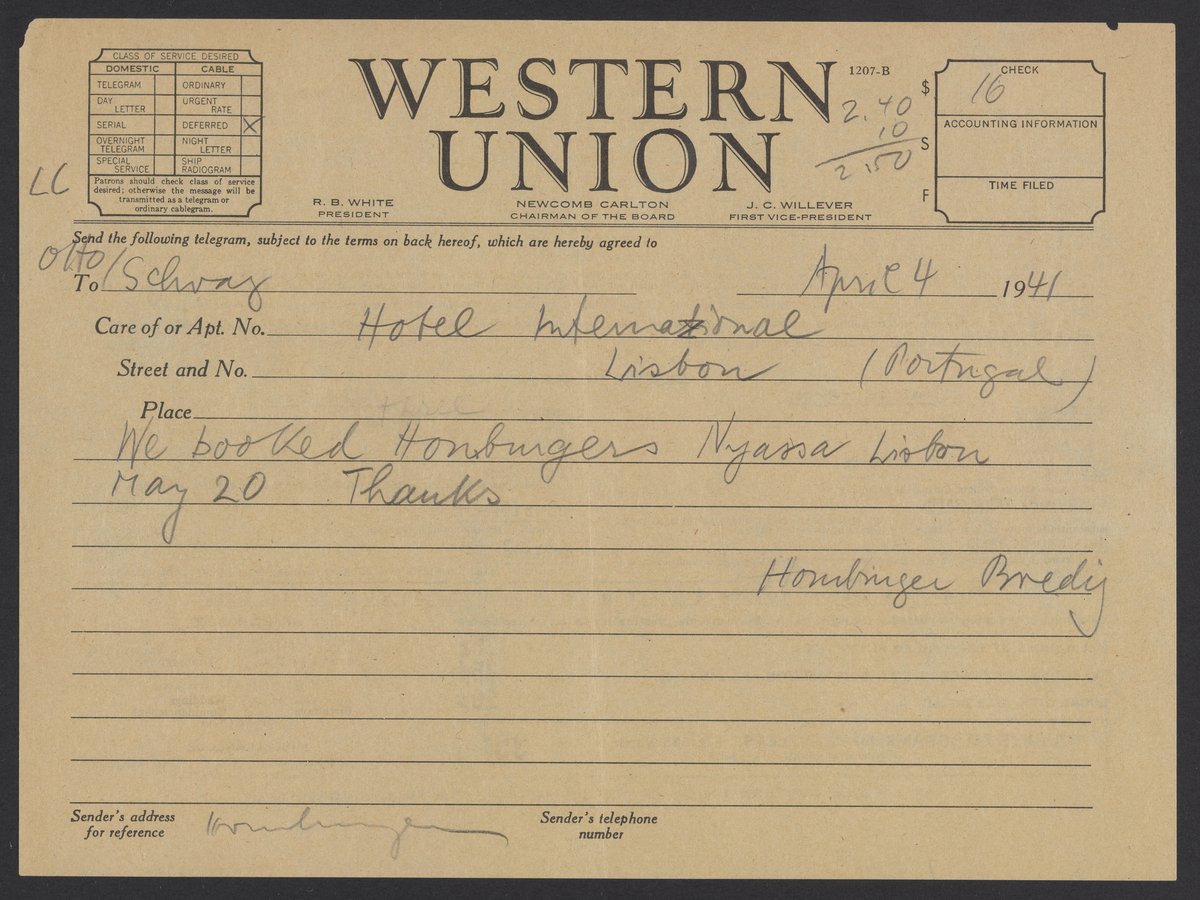 CLASS OF SERVICE DESIRED
DOMESTIC CABLE
TELEGRAM ORDINARY
DAY LETTER URGENT RATE
SERIAL DEFERRED X
OVERNIGHT TELEGRAM NIGHT LETTER
SPECIAL SERVICE SHIP RADIOGRAM
Patrons should check class of service
desired; otherwise the message will be
transmitted as a telegram or
ordinary cablegram.
LC
WESTERN
UNION
1207-B
2.40
10
2.50
R. B. WHITE
PRESIDENT
NEWCOMB CARLTON
CHAIRMAN OF THE BOARD
J. C. WILLEVER
FIRST VICE-PRESIDENT
$
S
F
CHECK
16
ACCOUNTING INFORMATION
TIME FILED
Send the following telegram, subject to the terms on back hereof, which are hereby agreed to
To Otto Schwarz April 4 1941
Care of or Apt. No. Hotel International
Street and No. Lisbon (Portugal)
Place
We booked Homburgers Nyassa Lisbon
May 20 Thanks
Homburger Bredig
Sender's address
for reference
Homburger
Sender's telephone
number